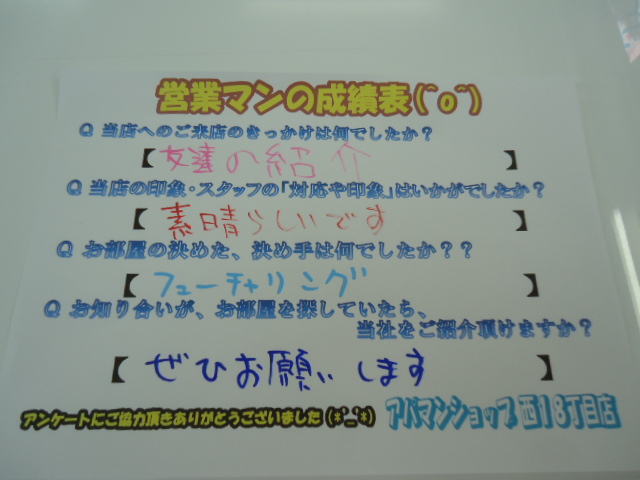 営業マンの成績表(^o^)
Q 当店へのご来店のきっかけは何でしたか？
【友達の紹介】
Q 当店の印象・スタッフの「対応や印象」はいかがでしたか？
【素晴らしいです】
Q お部屋の決めた、決め手は何でしたか？？
【フューチャリング】
Q お知り合いが、お部屋を探していたら、
当社をご紹介頂けますか？
【ぜひお願いします】
アンケートにご協力頂きありがとうございました(*'_'*) アパマンショップ 西18丁目店